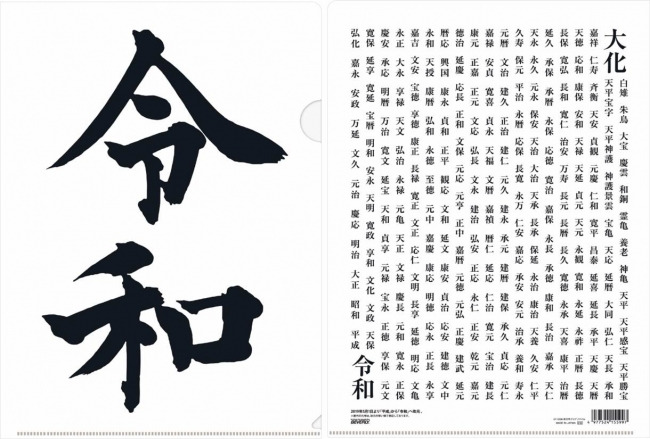 令和
大化
白雉 朱鳥 大宝 慶雲 和銅 霊亀 養老 神亀 天平 天平感宝 天平勝宝
天平宝字 天平神護 神護景雲 宝亀 天応 延暦 大同 弘仁 天長 承和
嘉祥 仁寿 斉衡 天安 貞観 元慶 仁和 寛平 昌泰 延喜 延長 承平 天慶 天暦
天徳 応和 康保 安和 天禄 天延 貞元 天元 永観 寛和 永延 永祚 正暦 長徳
長保 寛弘 長和 寛仁 治安 万寿 長元 長暦 長久 寛徳 永承 天喜 康平 治暦
延久 承保 承暦 永保 応徳 寛治 嘉保 永長 承徳 康和 長治 嘉承 天仁
天永 永久 元永 保安 天治 大治 天承 長承 保延 永治 康治 天養 久安 仁平
久寿 保元 平治 永暦 応保 長寛 永万 仁安 嘉応 承安 安元 治承 養和 寿永
元暦 文治 建久 正治 建仁 元久 建永 承元 建暦 建保 承久 貞応 元仁
嘉禄 安貞 寛喜 貞永 天福 文暦 嘉禎 暦仁 延応 仁治 寛元 宝治 建長
康元 正嘉 正元 文応 弘長 文永 建治 弘安 正応 永仁 正安 乾元 嘉元
徳治 延慶 応長 正和 文保 元応 元亨 正中 嘉暦 元徳 元弘 正慶 建武 延元
暦応 興国 康永 貞和 正平 観応 文和 延文 康安 貞治 応安 建徳 文中
永和 天授 康暦 弘和 永徳 至徳 元中 嘉慶 康応 明徳 応永 正長 永享
嘉吉 文安 宝徳 享徳 康正 長禄 寛正 文正 応仁 文明 長享 延徳 明応 文亀
永正 大永 享禄 天文 弘治 永禄 元亀 天正 文禄 慶長 元和 寛永 正保
慶安 承応 明暦 万治 寛文 延宝 天和 貞享 元禄 宝永 正徳 享保 元文
寛保 延享 寛延 宝暦 明和 安永 天明 寛政 享和 文化 文政 天保
弘化 嘉永 安政 万延 文久 元治 慶応 明治 大正 昭和 平成
令和
2019年5月1日より「平成」から「令和」へ改元。
BEVERLY
4 977524 155997